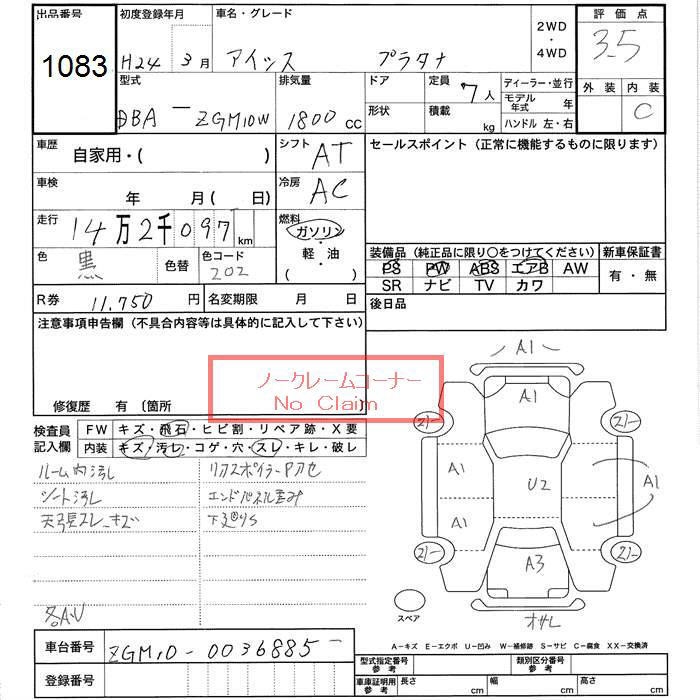 出品番号 初度登録年月 車名・グレード 2WD 評価点
1083 H24 3月 アイシス プラタナ ・4WD 3.5
型式 排気量 ドア 定員 7人 ディーラー・並行 外装 内装
DBA - ZGM10W 1800cc 形状 積載 kg モデル年式 年 C
ハンドル 左・右
車歴 自家用・( ) シフト AT セールスポイント(正常に機能するものに限ります)
車検 年 月(日) 冷房 AC
走行 14万2千097km 燃料 ガソリン・軽・油・( )
色 黒 色替 色コード 202
装備品(純正品に限り○をつけてください) 新車保証書
PS PW ABS エアB AW 有・無
SR ナビ TV カワ
R券 11.750円 名変期限 月 日 後日品
注意事項申告欄(不具合内容等は具体的に記入して下さい)
ノークレームコーナー
No Claim
修復歴 有 〔箇所 〕
検査員記入欄 FW キズ・飛石・ヒビ割・リペア跡・X要
内装 キズ・汚レ・コゲ・穴・スレ・キレ・破レ
ルーム内汚レ
シート汚レ
天張スレ、キズ
リアスポイラー
エンドパネル歪み
各A.U
A1
A1
21- 21-
A1 U2 A1
A1
21- A3 21-
スペア オサレ
A-キズ E-エクボ U-凹み W-補修跡 S-サビ C-腐食 XX-交換済
車台番号 ZGM10-0036885-
登録番号
型式指定番号 参考 類別区分番号 参考
車庫証明用 参考 長さ cm 幅 cm 高さ cm